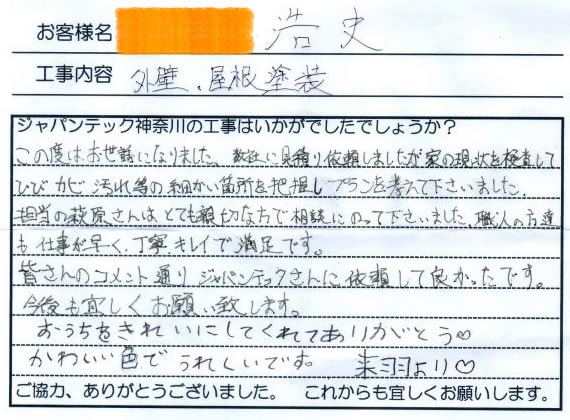 お客様名 浩史
工事内容 外壁、屋根塗装
ジャパンテック神奈川の工事はいかがでしたでしょうか?
この度はお世話になりました。数社に見積り依頼しましたが家の現状を検査して
ひび カビ 汚れ等の細かい箇所を把握しプランを考えて下さいました。
担当の萩原さんはとても親切な方で相談にのって下さいました。職人の方達
も仕事が早く、丁寧キレイで満足です。
皆さんのコメント通りジャパンテックさんに依頼して良かったです。
今後も宜しくお願い致します。
おうちをきれいにしてくれてありがとう♡
かわいい色でうれしいです。 来羽より♡
ご協力、ありがとうございました。 これからも宜しくお願いします。